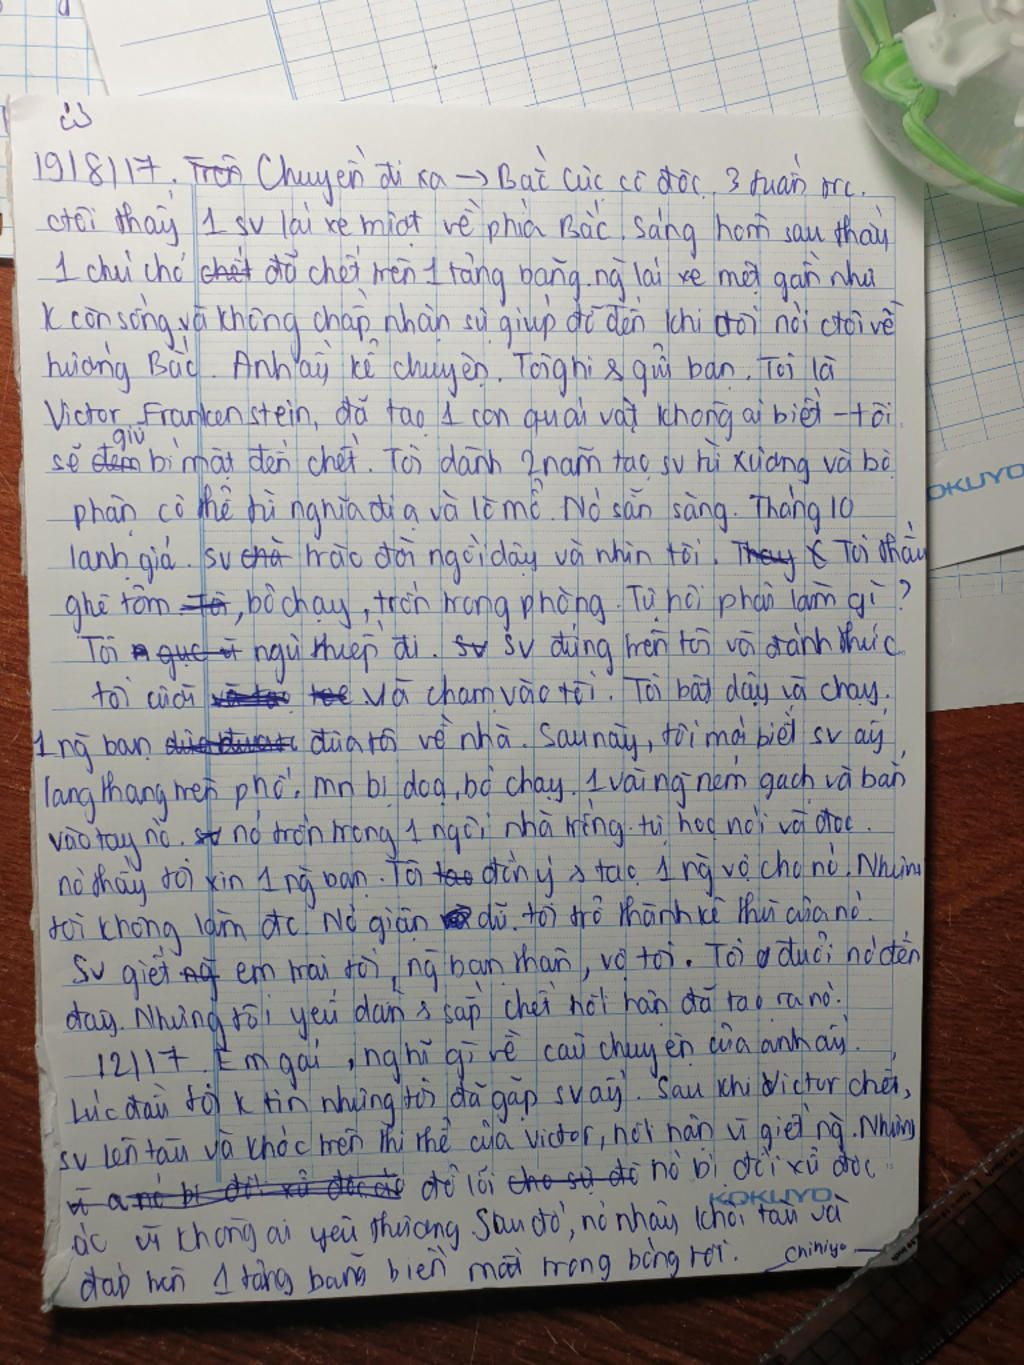 19/8/17. Trên Chuyến đi xa → Bắc Cực cô độc. 3 tuần trc.
ctôi thấy 1 sv lái xe miợt về phía Bắc. Sáng hôm sau thấy
1 chú chó chết đã chết trên 1 tảng băng. ng lái xe mệt gần như
k còn sống và không chấp nhận sự giúp đỡ đến khi ctôi nói ctôi về
hướng Bắc. Anh ấy kể chuyện. Tôi ghi & gửi bạn. Tôi là
Victor Frankenstein, đã tạo 1 con quái vật không ai biết - tôi
giữ
sẽ đem bí mật đến chết. Tôi dành 2 năm tạo sv từ xương và bộ
phận cơ thể từ nghĩa địa và lò mổ. Nó sẵn sàng. Tháng 10
lạnh giá. sv chà trào đời ngồi dậy và nhìn tôi. Thay Tôi thấy
ghê tởm Tô, bỏ chạy, trốn trong phòng. Tự hỏi phải làm gì?
Tôi ngục ngủ thiếp đi. sv sv đứng trên tôi và đánh thức
tôi cười và tạo và chạm vào tôi. Tôi bật dậy và chạy.
1 ng bạn đưa tôi về nhà. Sau này, tôi mới biết sv ấy
lang thang trên phố. mn bị doạ, bỏ chạy. 1 vài ng ném gạch và bắn
vào tay nó. sv nó trốn trong 1 ngôi nhà trống. tự học nói và đọc.
nó thấy tôi xin 1 ng bạn. Tôi tao đồng ý & tạo 1 ng vợ cho nó. Nhưng
tôi không làm đc. Nó giận dữ. tôi trở thành kẻ thù của nó.
Sv giết ng em trai tôi, ng bạn thân, vợ tôi. Tôi đuổi nó đến
đây. Nhưng tôi yếu dần & sắp chết hối hận đã tạo ra nó.
12/17. Em gái, nghĩ gì về câu chuyện của anh ấy.
Lúc đầu tôi k tin nhưng tôi đã gặp sv ấy. Sau khi Victor chết,
sv lên tàu và khóc trên thi thể của Victor, hối hận vì giết ng. Nhưng
nó bị đối xử độc đổ lỗi cho sự đó nó bị đối xử độc
ác vì không ai yêu thương. Sau đó, nó nhảy khỏi tàu và
đáp trên 1 tảng băng biến mất trong bóng tối. chiniyo
KOKUYO
OKUYO